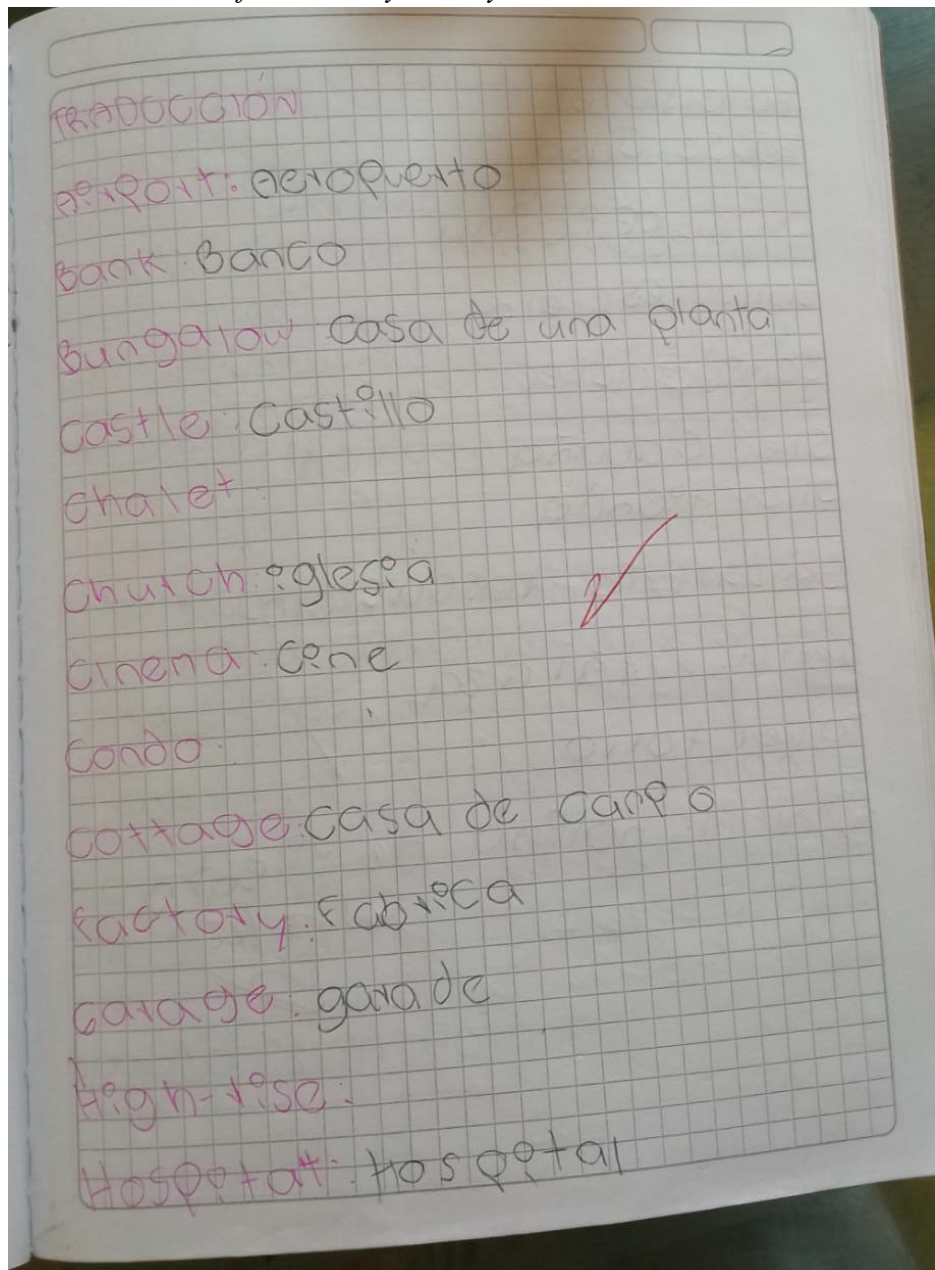 TRADUCCIÓN
Airport: aeropuerto
Bank: Banco
Bungalow casa de una planta
castle: castillo
chalet
church: iglesia
cinema: cine
condo
cottage: casa de campo
factory: fabrica
Garage: garade
High-rise:
Hospital: Hospital